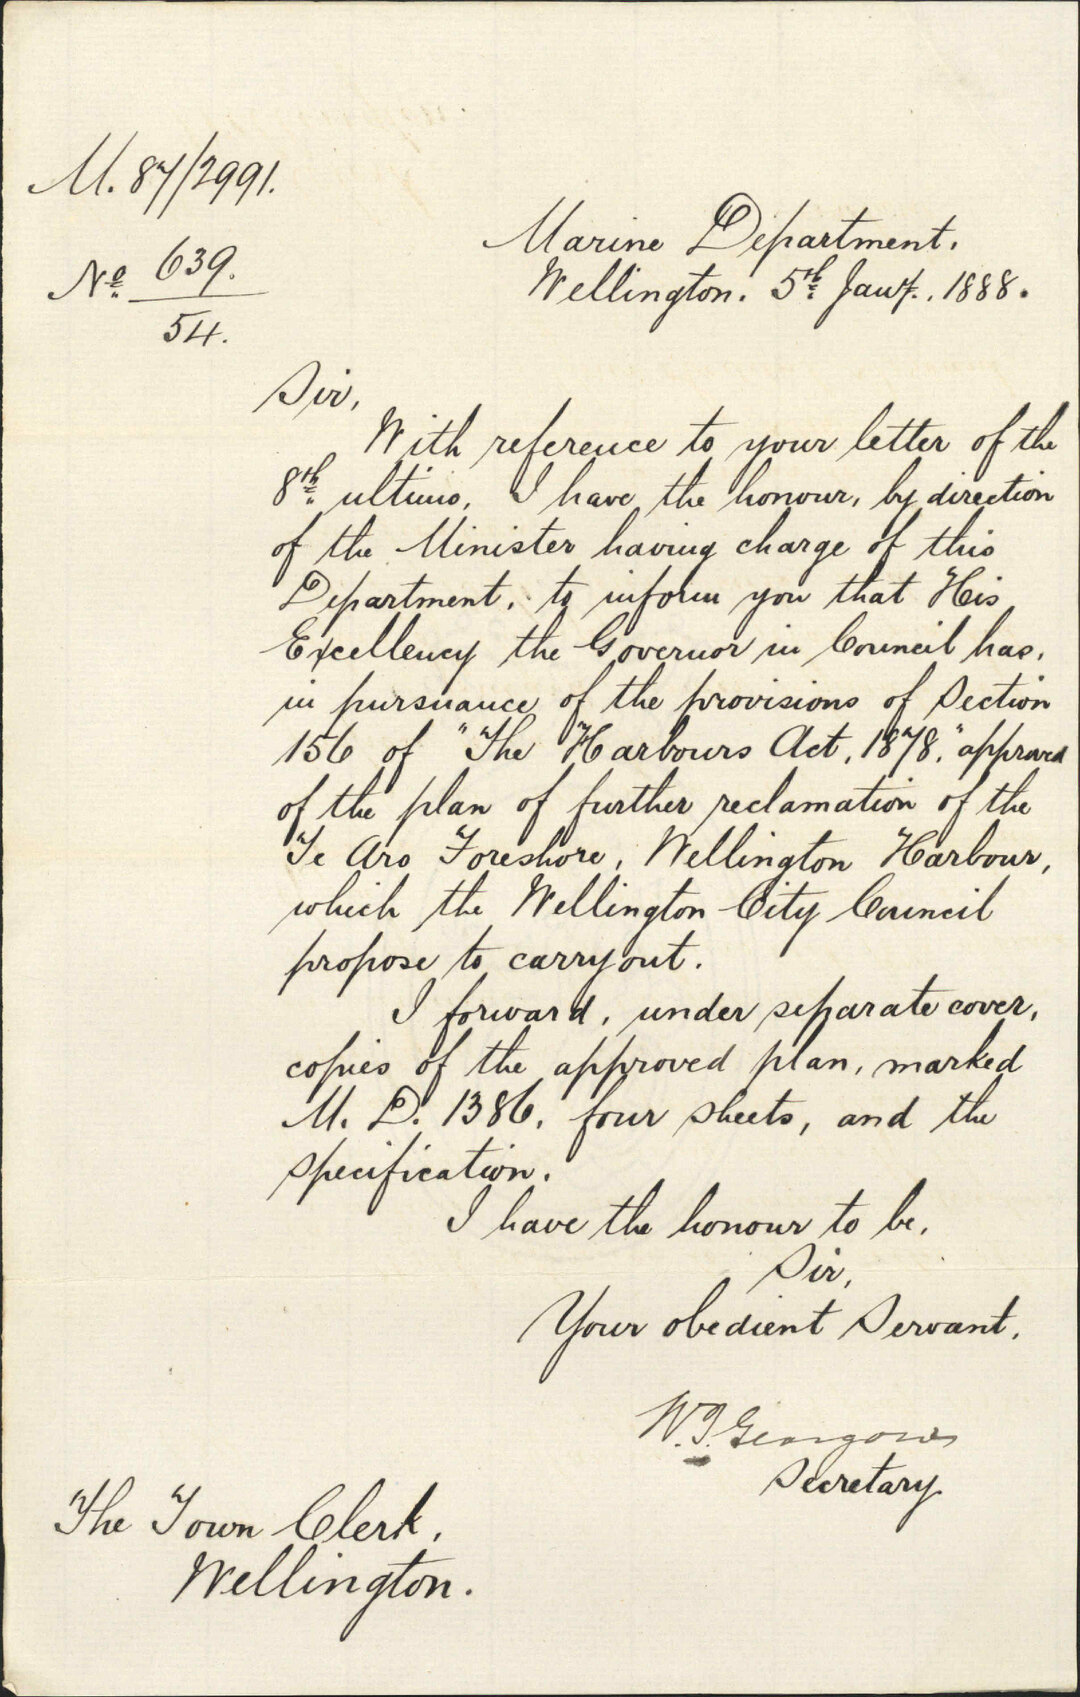 M. 87/2991.
No 639.
54.
Marine Department.
Wellington. 5th Jany. 1888.
Sir,
With reference to your letter of the
8th ultimo, I have the honour, by direction
of the Minister having charge of this
Department, to inform you that His
Excellency the Governor in Council has,
in pursuance of the provisions of Section
156 of "The Harbours Act, 1878," approved
of the plan of further reclamation of the
Te Aro Foreshore, Wellington Harbour,
which the Wellington City Council
propose to carry out.
I forward, under separate cover,
copies of the approved plan, marked
M. D. 1386, four sheets, and the
specification.
I have the honour to be,
Sir,
Your obedient Servant,
Secretary
The Town Clerk,
Wellington.